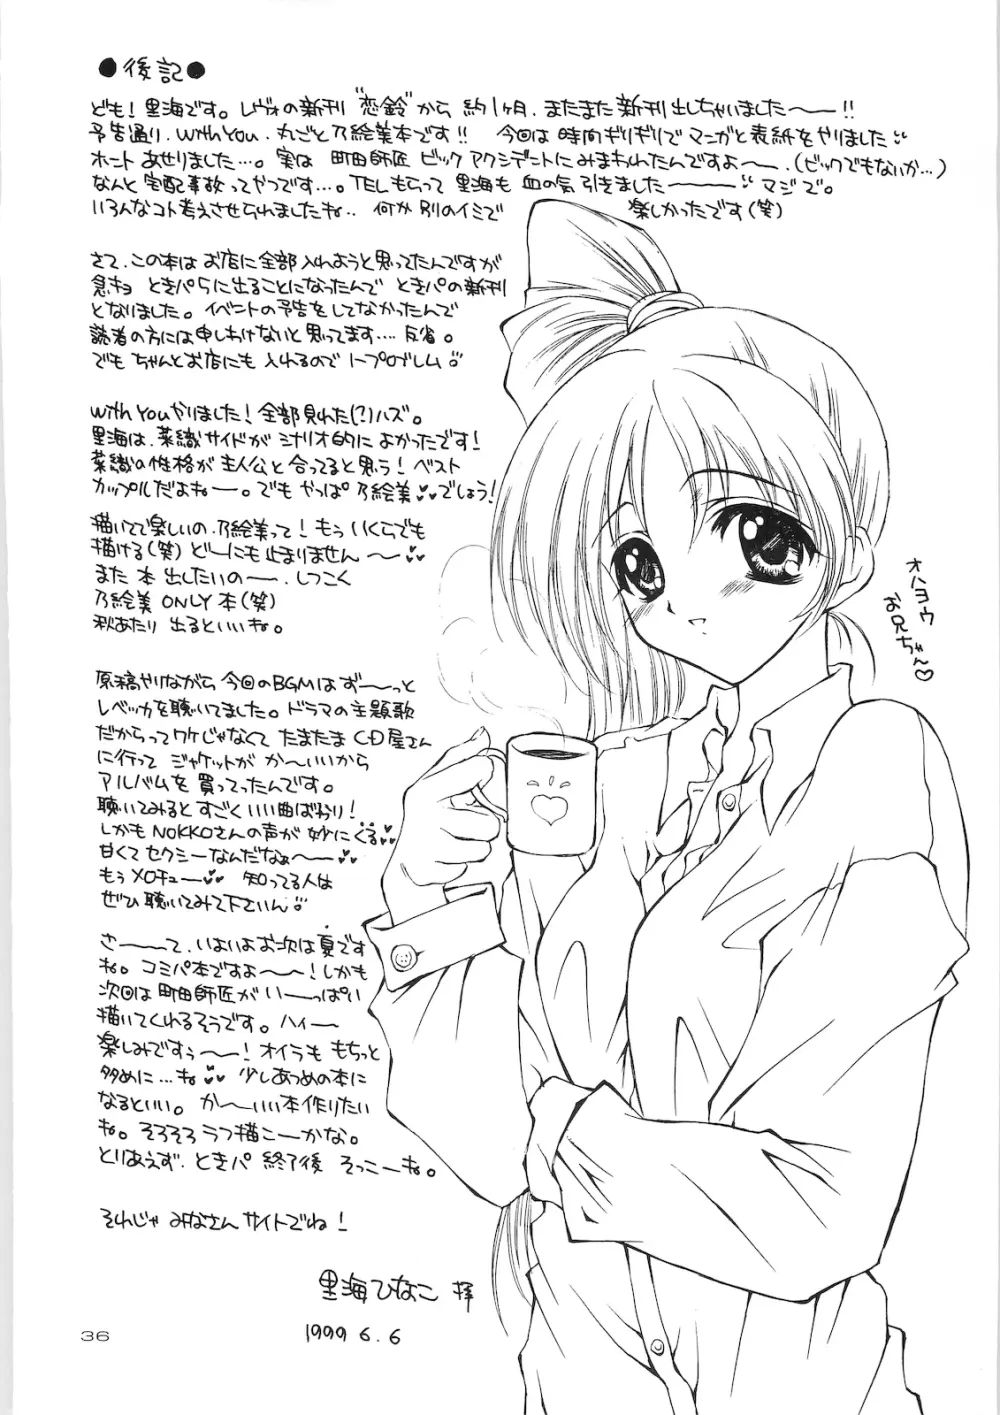 ●後記●
ども！里海です。レヴォの新刊"恋鈴"から 約1ヶ月．またまた新刊出しちゃいました〜ー!!
予告通り．With You．丸ごと乃絵美本です!!　今回は時間ギリギリでマンガと表紙をやりました
ホントあせりました…。実は 町田師匠 ビックアクシデントにみまわれたんですよ〜ー．(ビックでもないか…)
なんと宅配事故ってやつです…。TELもらって 里海も 血の気引きました〜ーー マジで。
いろんなコト考えさせられましたね‥ 何か別のイミで 楽しかったです(笑)
さて．この本は お店に全部入れようと思ってたんですが
急キョ ときパらに出ることになったんで ときパの新刊
となりました。イベントの予告をしてなかったんで
読者の方には申しわけないと思ってます…. 反省。
でも ちゃんとお店にも 入れるので ノープロブレム
With Youやりました！全部見れた(?)ハズ。
里海は．菜織サイドがシナリオ的によかったです！
菜織の性格が主人公と合ってると思う！ベスト
カップルだよねー。でもやっぱ乃絵美♥♥でしょう！
描いてて楽しいの．乃絵美って！もういくらでも
描ける(笑) どーにも止まりません〜♥♥
また 本 出したいのー．しつこく
乃絵美 ONLY 本(笑)
秋あたり 出るといいね。
原稿やりながら 今回のBGMはず〜ーっと
レベッカを聴いてました。ドラマの主題歌
だからってワケじゃなくて たまたま CD屋さん
に行って ジャケットが か〜いいから
アルバムを 買ってったんです。
聴いてみると すごく いい曲ばかり！
しかも NOKKOさんの声が 妙にくる♥♥
甘くてセクシーなんだなぁ〜ー♥♥
もぅ メロチュー♥♥ 知ってる人は
ぜひ 聴いてみて下さいん
さーーて．いよいよお次は夏です
ね。コミパ本ですよ〜ー！しかも
次回は 町田師匠が いーっぱい
描いてくれるそうです。ハイー
楽しみですぅ〜ー！オイラも もちっと
多めに…ね♥♥ 少しあつめの本に
なるといい。か〜いい本作りたい
ね。そろそろラフ描こーかな。
とりあえず．ときパ 終了後 そっこーね。
それじゃ みなさん サイトでね！
里海ひなこ 拝
1999 6. 6
オハヨウ
お兄ちゃん♡
36